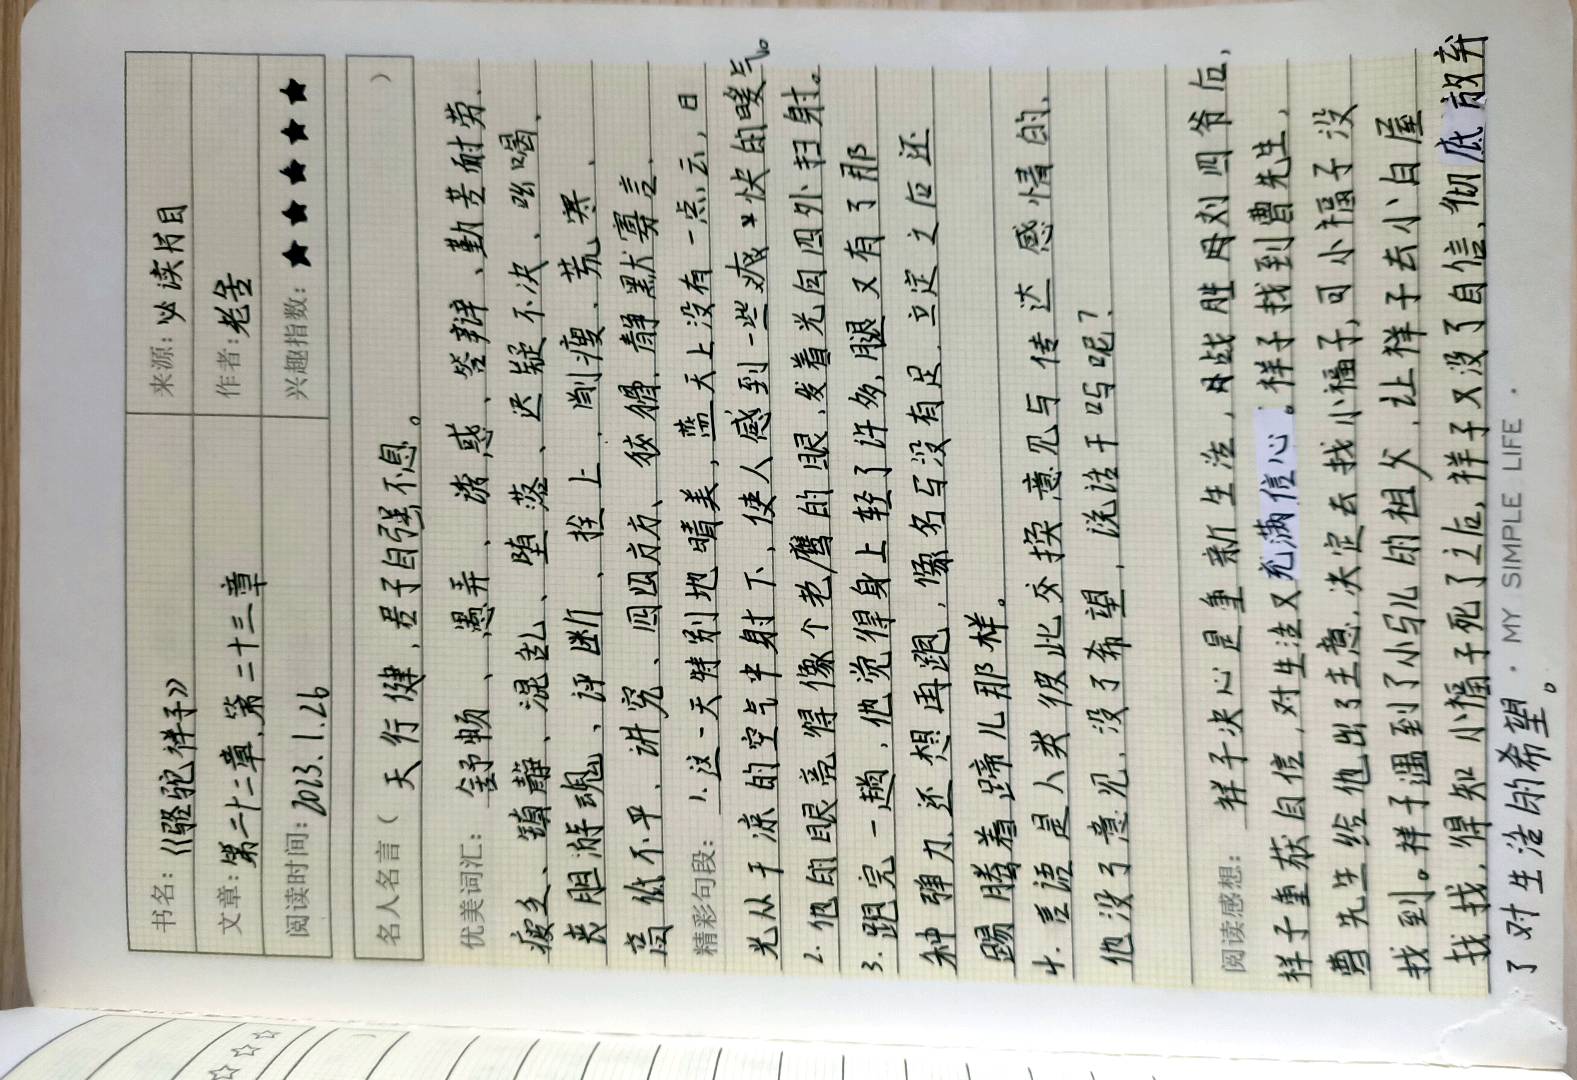 书名：《骆驼祥子》 来源：必读书目
文章：第二十二章，第二十三章 作者：老舍
阅读时间：2023.1.26 兴趣指数：★★★★★
名人名言（ ）
天行健，君子自强不息。
优美词汇：舒畅、愚弄、诱惑、答辩、勤苦耐劳、
疲乏、镇静、混乱、堕落、迟疑不决、吆喝、
丧胆游魂、评断、拴上、削瘦、荒寒、
高低不平、讲究、四四方方、狡猾、静默寡言、
精彩句段：1.这一天特别地晴美，蓝天上没有一点云，日
光从干凉的空气中射下，使人感到一些爽快的暖气。
2.他的眼亮得像个老鹰的眼，发着光向四外扫射。
3.跑完一趟，他觉得身上轻了许多，腿又有了那
种弹力，还想再跑，像名马没有足，立定之后还
踢腾着蹄儿那样。
4.言语是人类彼此交换意见与传达感情的，
他没了意见，没了希望，说话干吗呢？
阅读感想：祥子决心是重新生活，战胜刘四爷后，
祥子重获自信，对生活又充满信心。祥子找到曹先生，
曹先生给他出了主意，决定去找小福子，可小福子没
找到。祥子遇到了小马儿的祖父，让祥子去小白屋
找找，得知小福子死了之后，祥子又没了自信，彻底放弃
了对生活的希望。
· MY SIMPLE LIFE ·